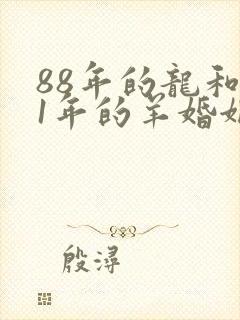 88年的龍和
1年的羊婚姻
殷潯